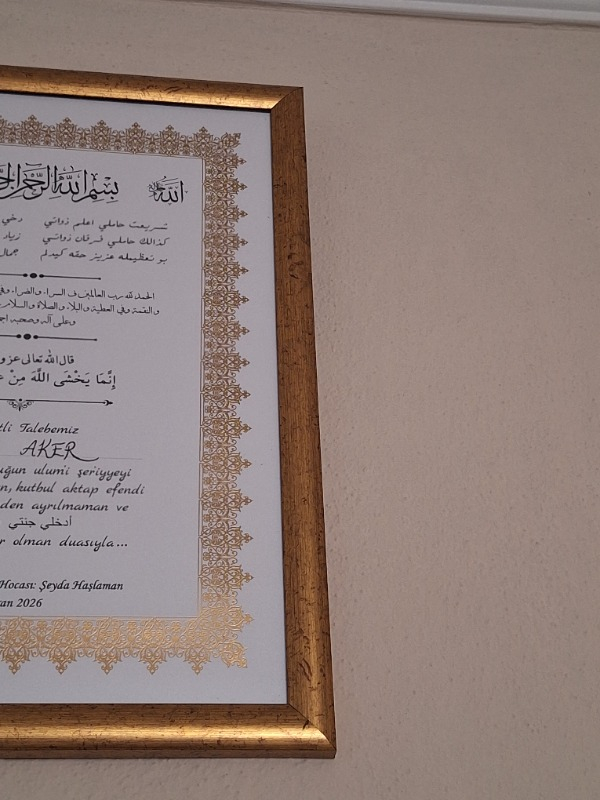 بسم الله الرحمن
الله
شريعت حاملي اعلم ذواتي
كذالك حاملي فرقان ذواتي زياد
بو تعظيمله عزيز حقه كيدلم جمال
الحمد لله رب العالمين في السراء والضراء وفي
والنقمة وفي العطية والبلاء والصلاة والسلام
وعلى آله وصحبه
قال الله تعالى عز و
إِنَّمَا يَخْشَى اللَّهَ مِنْ
tli Talebemiz
AKER
uğun ulumi şeriyyeyi
n, kutbul aktap efendi
den ayrılmaman ve
أدخلي جنتي
r olman duasıyla...
Hocası: Şeyda Haşlaman
ran 2026